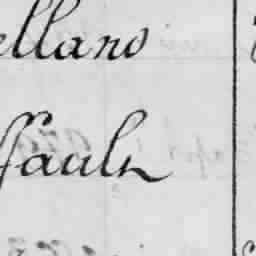 ellano
ffauln